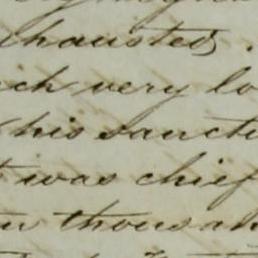 hausted.
ich very lo
his sancti
t was chief
thousan